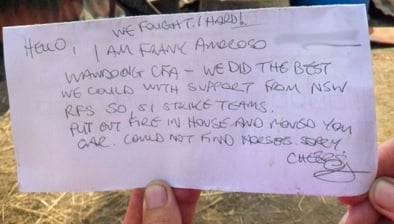 WE FOUGHT! HARD!
HELLO, I AM FRANK AMOROSO
WANDONG CFA - WE DID THE BEST
WE COULD WITH SUPPORT FROM NSW
RFS SO, S1 STRIKE TEAMS.
PUT OUT FIRE IN HOUSE AND MOVED YOU
CAR. COULD NOT FIND HORSES. SORRY.
CHEERS